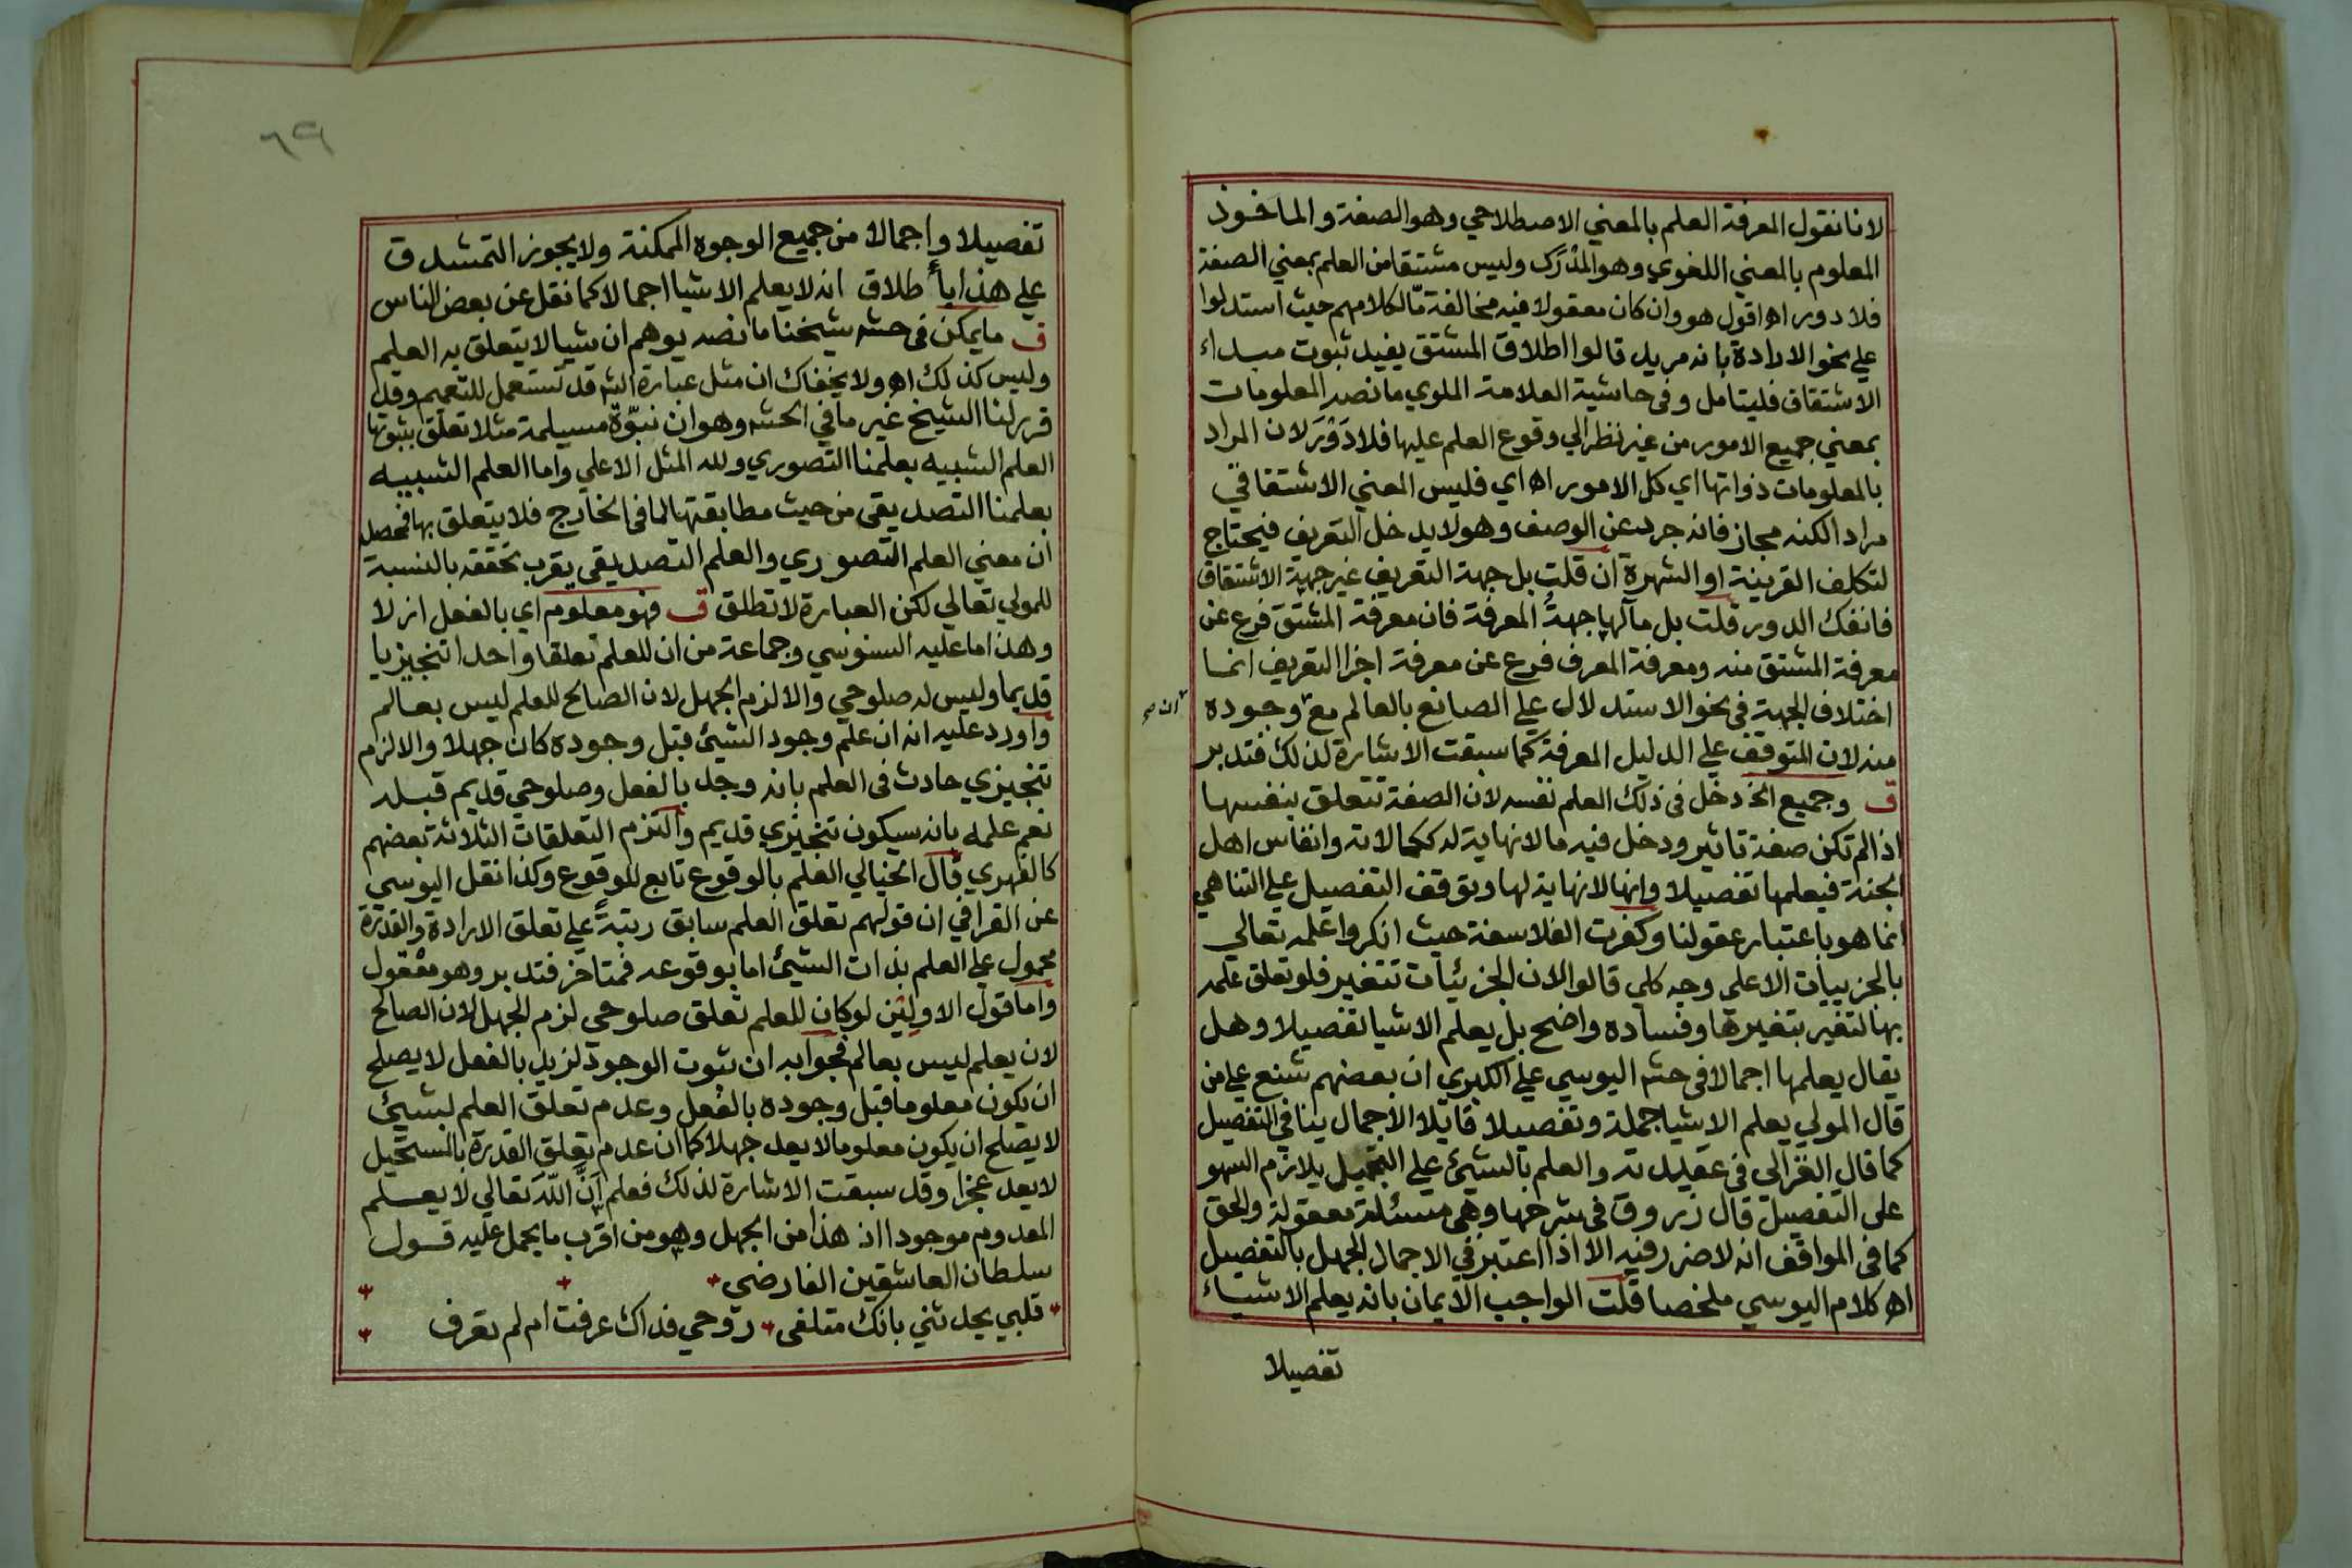 لانا نقول المعرفة العلم بالمعني الاصطلاحي وهو الصفة والماخوذ
المعلوم بالمعني اللغوي وهو المدرك وليس مشتقا من العلم بمعني الصفة
فلا دور اه اقول هو وان كان معقولا فيه مخالفة مّا لكلامهم حيث استدلوا
علي نحو الارادة بانه مريد قالوا اطلاق المشتق يفيد ثبوت مبداء
الاشتقاق فليتامل وفي حاشية العلامة الملوي ما نصه المعلومات
بمعني جميع الامور من غير نظر الي وقوع العلم عليها فلا دَوْرَ لان المراد
بالمعلومات ذواتها اي كل الامور اه اي فليس المعني الاشتقاقي
مراد الكنه مجاز فانه جرد عن الوصف وهو لا يدخل التعريف فيحتاج
لتكلف القرينة او الشهرة ان قلت بل جهة التعريف غير جهة الاشتقاق
فانفك الدور قلت بل مآلها جهةُ المعرفة فان معرفة المشتق فرع عن
معرفة المشتق منه ومعرفة المعرف فرع عن معرفة اجزا التعريف انما
اختلاف الجهة في نحو الاستدلال علي الصانع بالعالم مع وجوده
ان صح
منه لان المتوقف علي الدليل المعرفة كما سبقت الاشارة لذلك فتدبر
ق وجميع الخ دخل في ذلك العلم نفسه لان الصفة تتعلق بنفسها
اذا لم تكن صفة تاثير ودخل فيه ما لا نهاية له ككمالاته وانفاس اهل
الجنة فيعلمها تفصيلا وانها لا نهاية لها وتوقف التفصيل علي التناهي
انما هو باعتبار عقولنا وكفرت الفلاسفة حيث انكروا علمه تعالي
بالجزييات الا على وجه كلي قالوا لان الجزئيات تتغير فلو تعلق علمه
بها لتغير بتغيرها وفساده واضح بل يعلم الاشيا تفصيلا وهل
يقال يعلمها اجمالا في حشه اليوسي علي الكبري ان بعضهم شنع علي من
قال المولي يعلم الاشيا جملة وتفصيلا قايلا الاجمال ينافي التفصيل
كما قال الغزالى في عقيدته والعلم بالشيئ علي التجميل يلازم السهو
على التفصيل قال زروق في شرحها وهي مسئلة معقولة والحق
كما في المواقف انه لا ضرر فيه الا اذا اعتبر في الاجمال الجهل بالتفصيل
اه كلام اليوسي ملخصا قلت الواجب الايمان بانه يعلم الاشياء
تفصيلا
٦٩
تفصيلا واجمالا من جميع الوجوه الممكنة ولا يجوز التمشدق
علي هذا باطلاق انه لا يعلم الاشيا اجمالا كما نقل عن بعض الناس
ق ما يمكن في حشه شيخنا ما نصه يوهم ان شيا لا يتعلق به العلم
وليس كذلك اه ولا يخفاك ان مثل عبارة الشه قد تستعمل للتعميم وقد
قرر لنا الشيخ غير ما في الحشه وهو ان نبوّة مسيلمة مثلا تعلق بثبوتها
العلم الشبيه بعلمنا التصوري ولله المثل الاعلي واما العلم الشبيه
بعلمنا التصديقي من حيث مطابقتها لما في الخارج فلا يتعلق بها فحصل
ان معني العلم التصوري والعلم التصديقي يقرب تحققه بالنسبة
للمولي تعالي لكن العبارة لا تطلق ق فهو معلوم اي بالفعل ازلا
وهذا ما عليه السنوسي وجماعة من ان للعلم تعلقا واحدا تنجيزيا
قديما وليس له صلوحي والا لزم الجهل لان الصالح للعلم ليس بعالم
واورد عليه انه ان علم وجود الشيئ قبل وجوده كان جهلا والا لزم
تنجيزي حادث في العلم بانه وجد بالفعل وصلوحي قديم قبله
نعم علمه بانه سيكون تنجيزي قديم والتزم التعلقات الثلاثة بعضهم
كالفهري قال الخيالي العلم بالوقوع تابع للوقوع وكذا نقل اليوسي
عن القرافي ان قولهم تعلق العلم سابق رتبةً علي تعلق الارادة والقدرة
محمول علي العلم بذات الشيئ اما بوقوعه فمتاخر فتدبر وهو معقول
واما قول الاولين لو كان للعلم تعلق صلوحي لزم الجهل لان الصالح
لان يعلم ليس بعالم فجوابه ان ثبوت الوجود لزيد بالفعل لا يصلح
ان يكون معلوما قبل وجوده بالفعل وعدم تعلق العلم لشيئ
لا يصلح ان يكون معلوما لا يعد جهلا كما ان عدم تعلق القدرة بالمستحيل
لا يعد عجزا وقد سبقت الاشارة لذلك فعلم اَنَّ اللّهَ تعالي لا يعلم
المعدوم موجودا اذ هذا من الجهل وهو من اقرب ما يحمل عليه قول
سلطان العاشقين الفارضي
قلبي يحدثني بانك متلفى روحي فداك عرفت ام لم تعرف